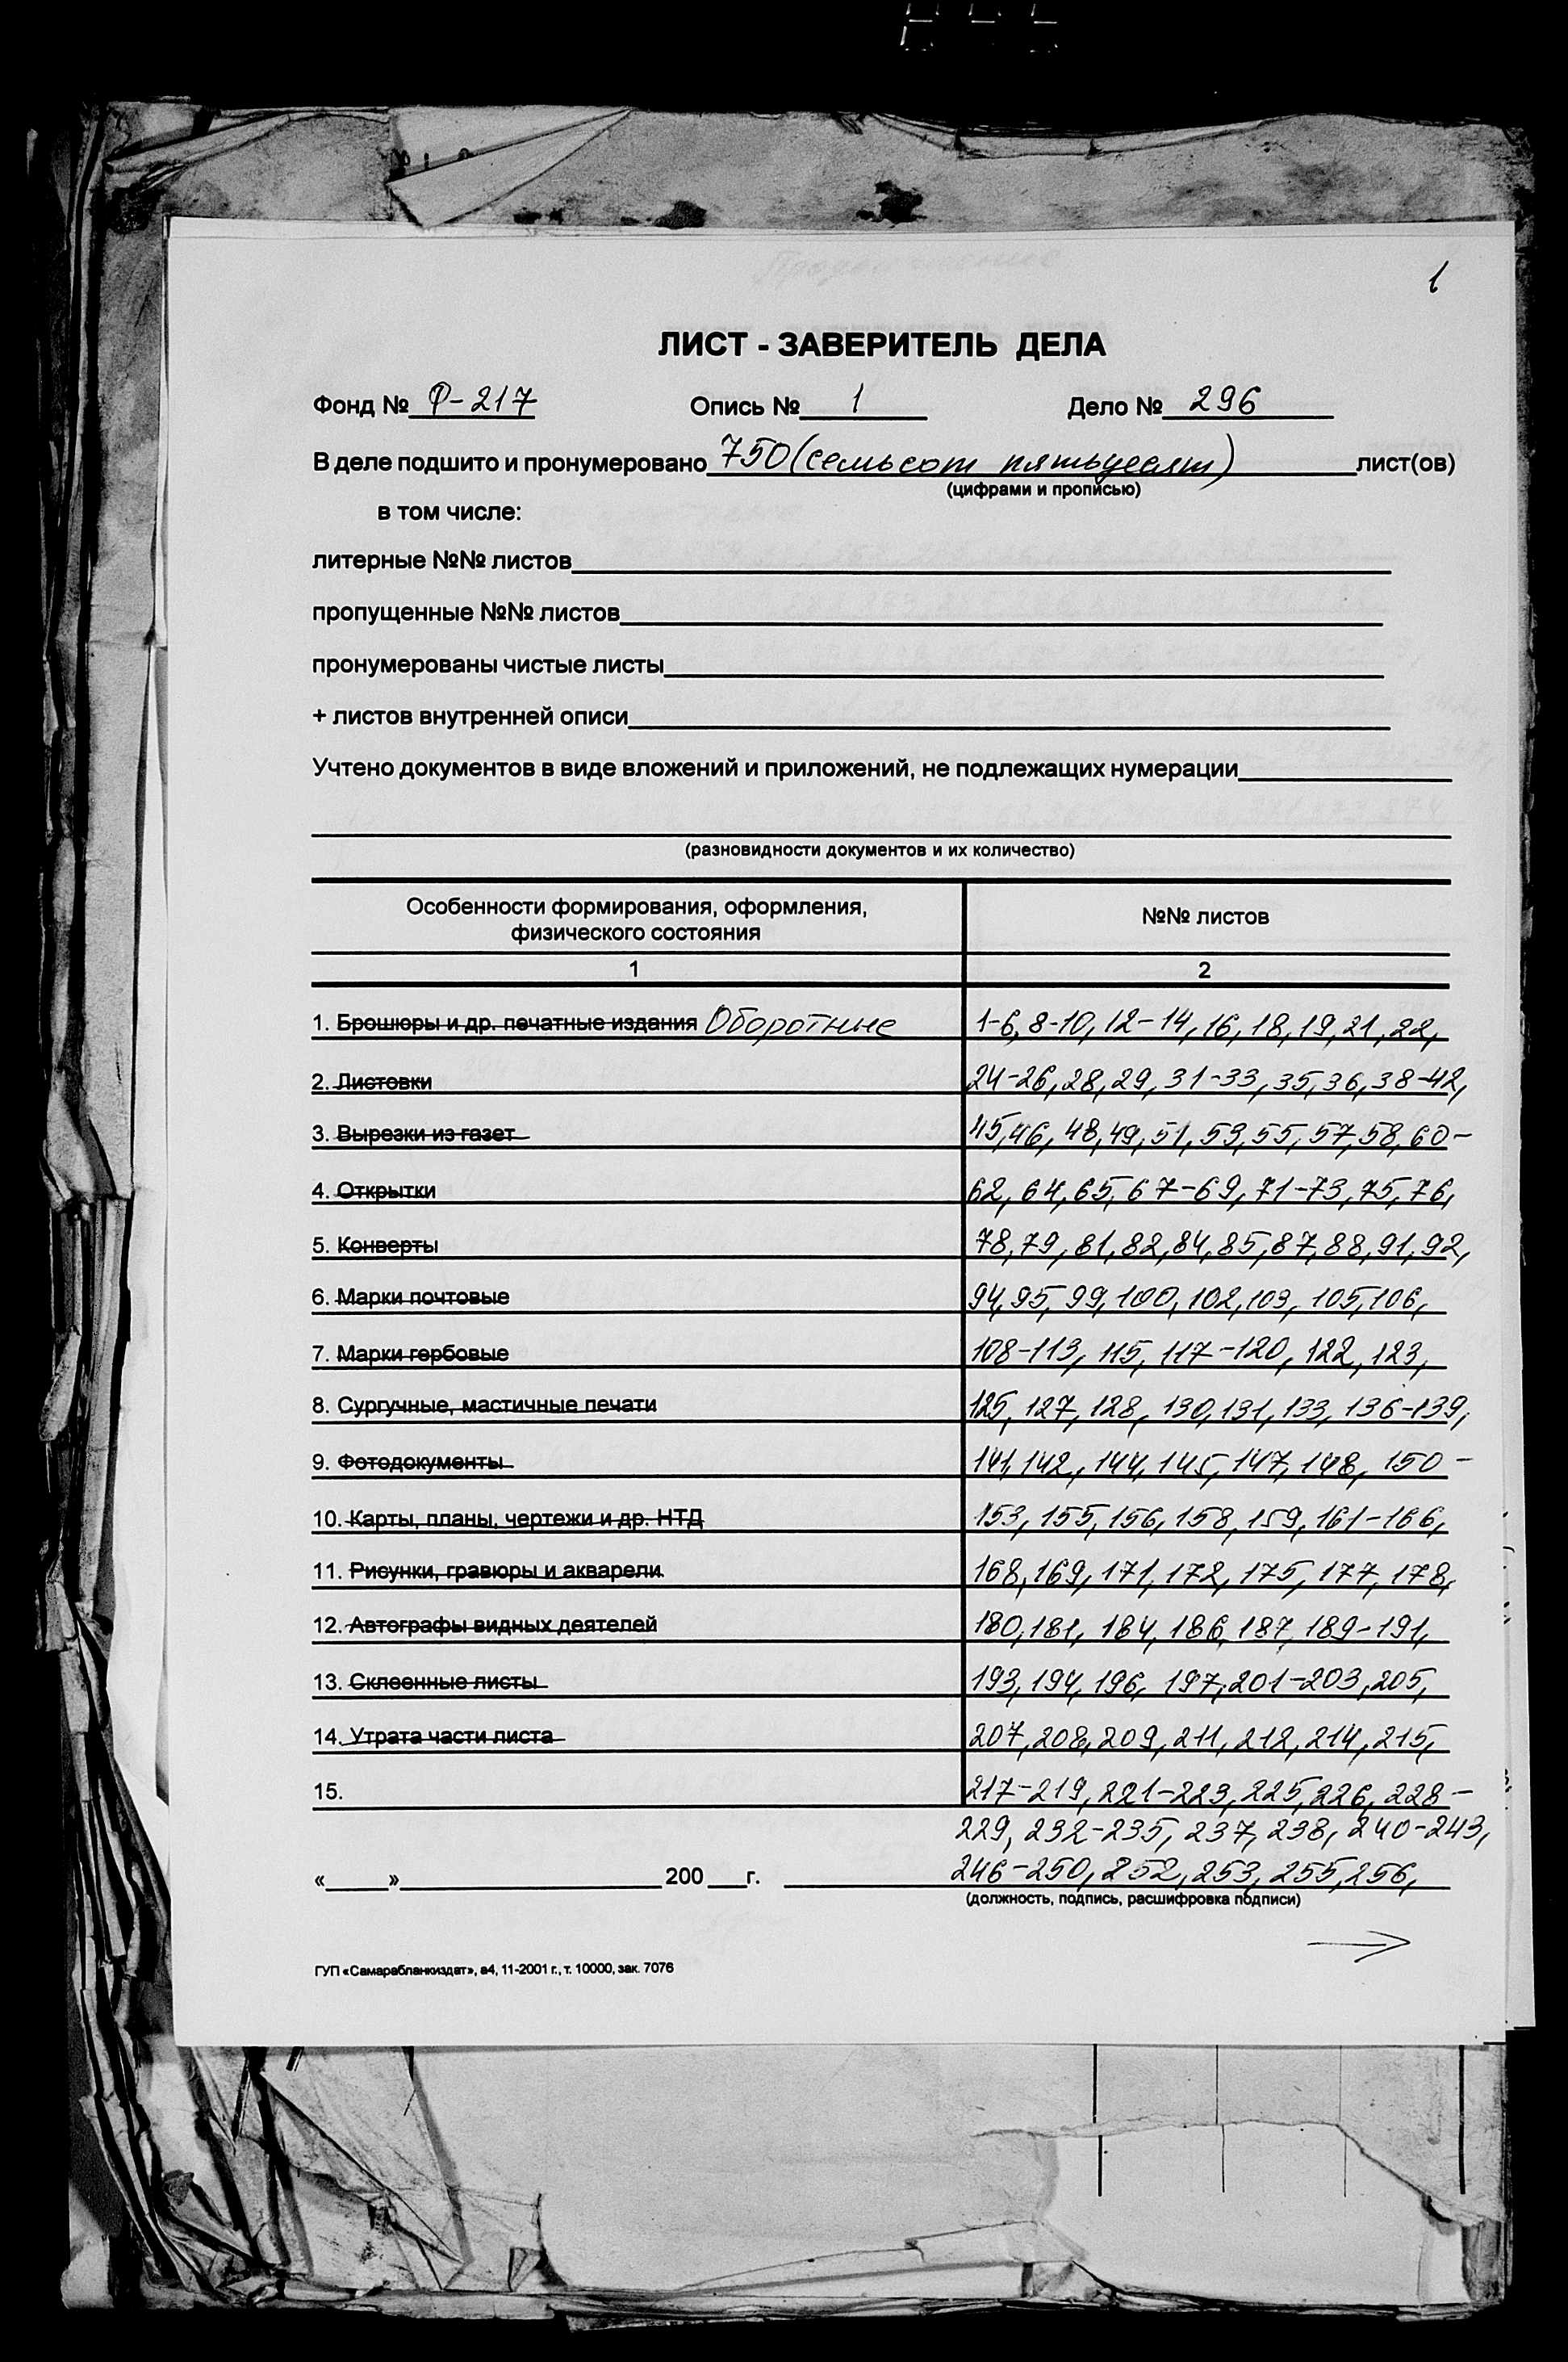 1
ЛИСТ - ЗАВЕРИТЕЛЬ ДЕЛА
Фонд № Р-217 Опись № 1 Дело № 296
В деле подшито и пронумеровано 750 (семьсот пятьдесят) лист(ов)
(цифрами и прописью)
в том числе:
литерные №№ листов
пропущенные №№ листов
пронумерованы чистые листы
+ листов внутренней описи
Учтено документов в виде вложений и приложений, не подлежащих нумерации
(разновидности документов и их количество)
Особенности формирования, оформления, №№ листов
физического состояния
1 2
1. Брошюры и др. печатные издания Оборотные 1-6, 8-10, 12-14, 16, 18, 19, 21, 22,
2. Листовки 24-26, 28, 29, 31-33, 35, 36, 38-42,
3. Вырезки из газет 45, 46, 48, 49, 51, 53, 55, 57, 58, 60-
4. Открытки 62, 64, 65, 67-69, 71-73, 75, 76,
5. Конверты 78, 79, 81, 82, 84, 85, 87, 88, 91, 92,
6. Марки почтовые 94, 95, 99, 100, 102, 103, 105, 106,
7. Марки гербовые 108-113, 115, 117-120, 122, 123,
8. Сургучные, мастичные печати 125, 127, 128, 130, 131, 133, 136-139,
9. Фотодокументы 141, 142, 144, 145, 147, 148, 150-
10. Карты, планы, чертежи и др. НТД 153, 155, 156, 158, 159, 161-166,
11. Рисунки, гравюры и акварели 168, 169, 171, 172, 175, 177, 178,
12. Автографы видных деятелей 180, 181, 184, 186, 187, 189-191,
13. Склеенные листы 193, 194, 196, 197, 201-203, 205,
14. Утрата части листа 207, 208, 209, 211, 212, 214, 215,
15. 217-219, 221-223, 225, 226, 228-
229, 232-235, 237, 238, 240-243,
« » 200 г. 246-250, 252, 253, 255, 256,
(должность, подпись, расшифровка подписи)
ГУП «Самарабланкиздат», а4, 11-2001 г., т. 10000, зак. 7076